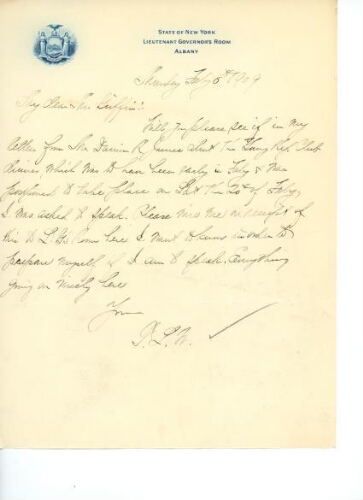 STATE OF NEW YORK
LIEUTENANT GOVERNOR'S ROOM
ALBANY
Monday Feby 8th 1909
My Dear Mr Griffin:
Will you please see if in my
letter from Mr Darwin R. James about the Young Rep. Club
dinner, which was to have been early in Feby & was
postponed to take place on Sat the 20th of Feby,
I was asked to speak. Please wire me on receipt of
this to Lt. Gov's Room here. I want to know in order to
prepare myself if I am to speak. Everything
going on nicely here
Yours